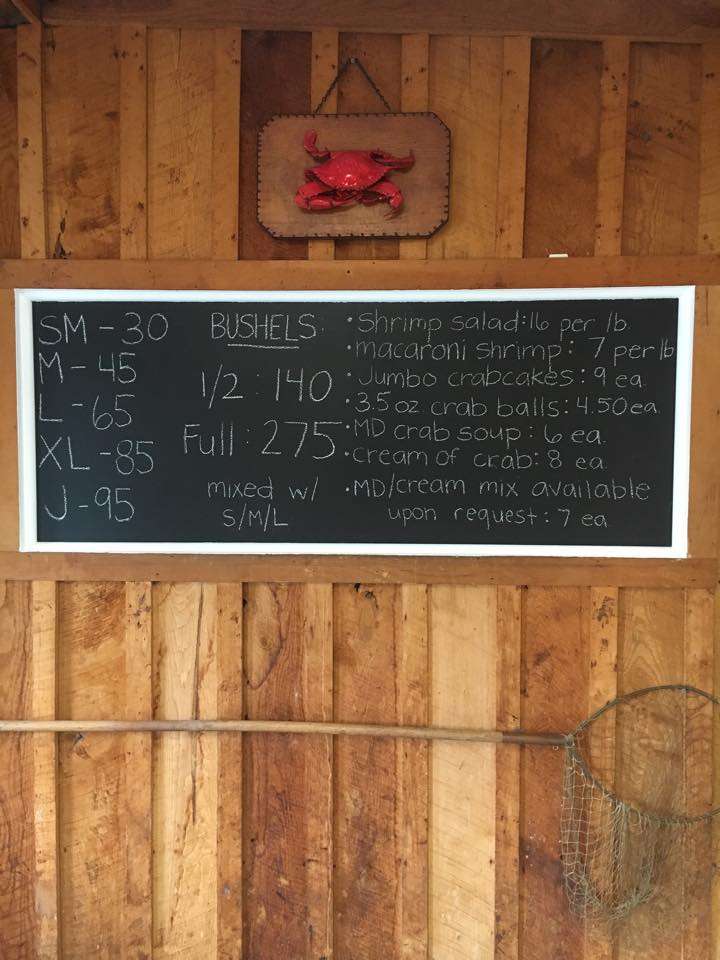 SM - 30
M - 45
L - 65
XL - 85
J - 95
BUSHELS
1/2 : 140
Full : 275
mixed w/
S/M/L
• Shrimp salad: 16 per lb.
• macaroni shrimp: 7 per lb
• Jumbo crabcakes: 9 ea.
• 3.5 oz crab balls: 4.50 ea.
• MD crab soup: 6 ea.
• cream of crab: 8 ea
• MD/cream mix available
upon request: 7 ea